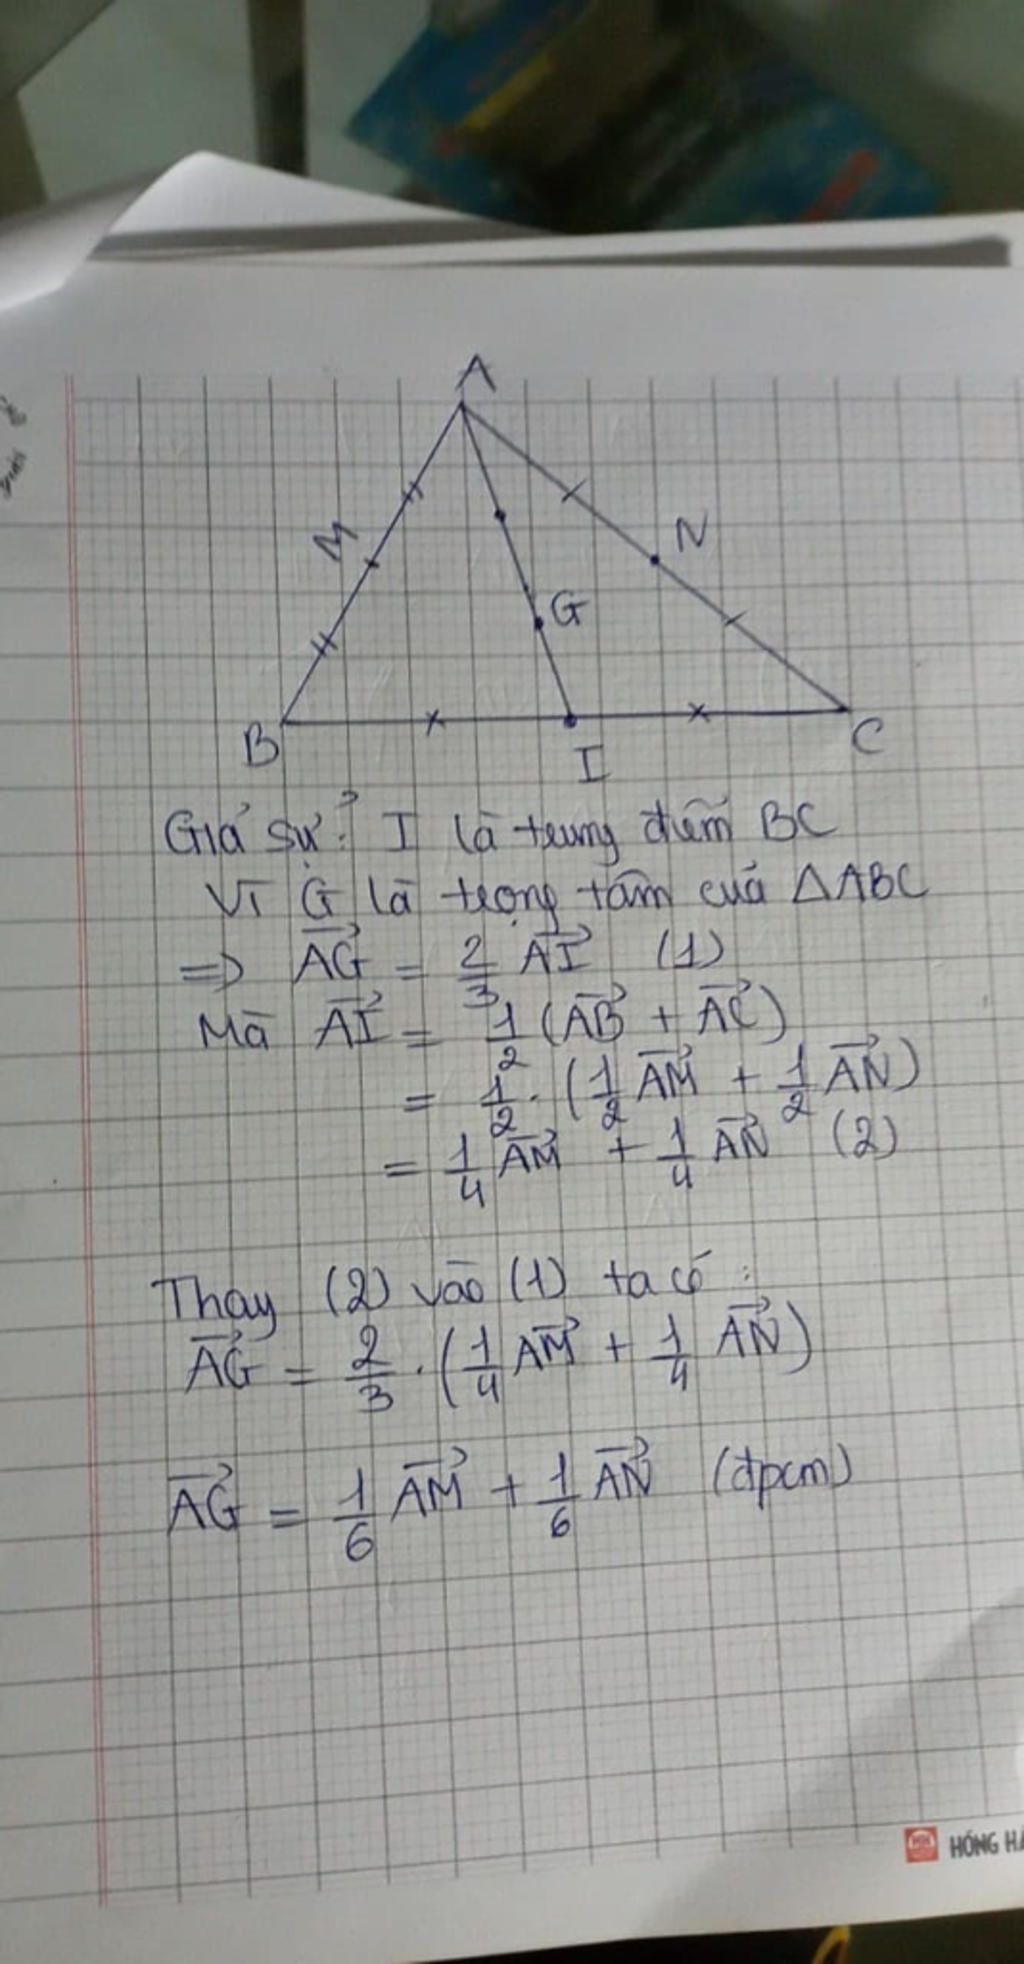 A
M
N
G
B
I
C
Giả sử: I là trung điểm BC
Vì G là trọng tâm của ΔABC
=> \overrightarrow{AG} = \frac{2}{3} \overrightarrow{AI} (1)
Mà \overrightarrow{AI} = \frac{1}{2} (\overrightarrow{AB} + \overrightarrow{AC})
= \frac{1}{2} . (\frac{1}{2} \overrightarrow{AM} + \frac{1}{2} \overrightarrow{AN})
= \frac{1}{4} \overrightarrow{AM} + \frac{1}{4} \overrightarrow{AN} (2)
Thay (2) vào (1) ta có :
\overrightarrow{AG} = \frac{2}{3} . (\frac{1}{4} \overrightarrow{AM} + \frac{1}{4} \overrightarrow{AN})
\overrightarrow{AG} = \frac{1}{6} \overrightarrow{AM} + \frac{1}{6} \overrightarrow{AN} (đpcm)
HỒNG HÀ